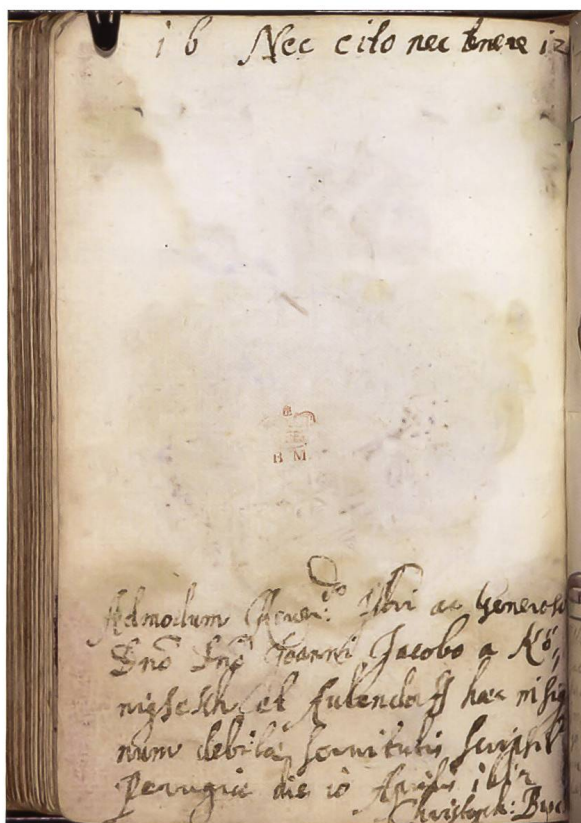 1 6 Nec cito nec temere 12
B M
Admodum Rever: do Illri ac Generoso
Dno Dno Joanni Jacobo a Kö,
nigseckh et Aulendorf hæc in sig
num debitæ servitutis scripsit
Perugiæ die 10 Aprilis 1612
Christoph: